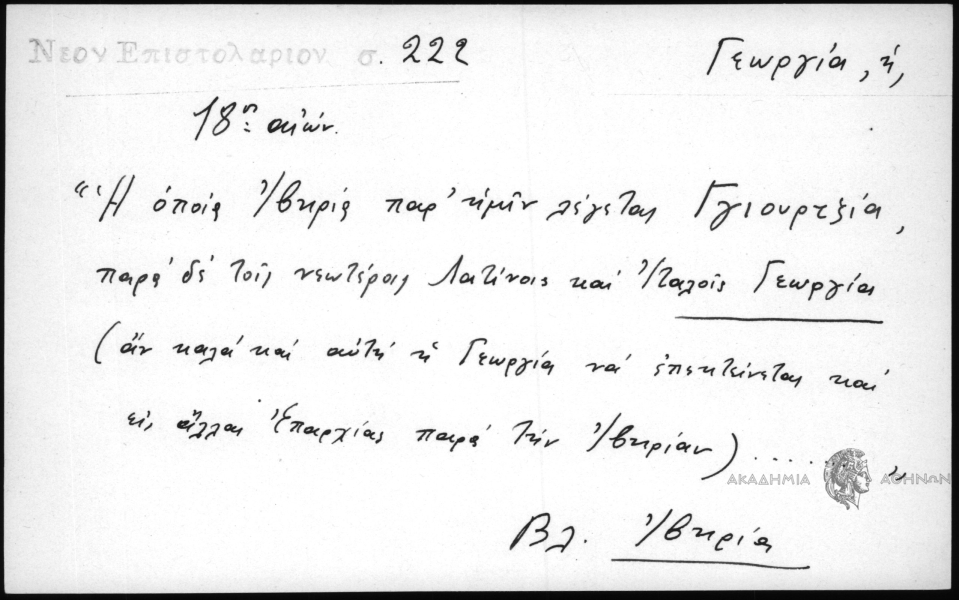 Νεον Επιστολαριον σ. 222
Γεωργία, ἡ,
18ης αἰών.
"Ἡ ὁποία Ἰβηρία παρ' ἡμῖν λέγεται Γγιουρτζία,
παρά δέ τοῖς νεωτέροις Λατίνοις καί Ἰταλοῖς Γεωργία
(ἄν καλά καί αὐτή ἡ Γεωργία νά ἐπεκτείνεται καί
εἰς ἄλλας Ἐπαρχίας παρά τήν Ἰβηρίαν) ........"
ΑΚΑΔΗΜΙΑ ΑΘΗΝΩΝ
Βλ. Ἰβηρία